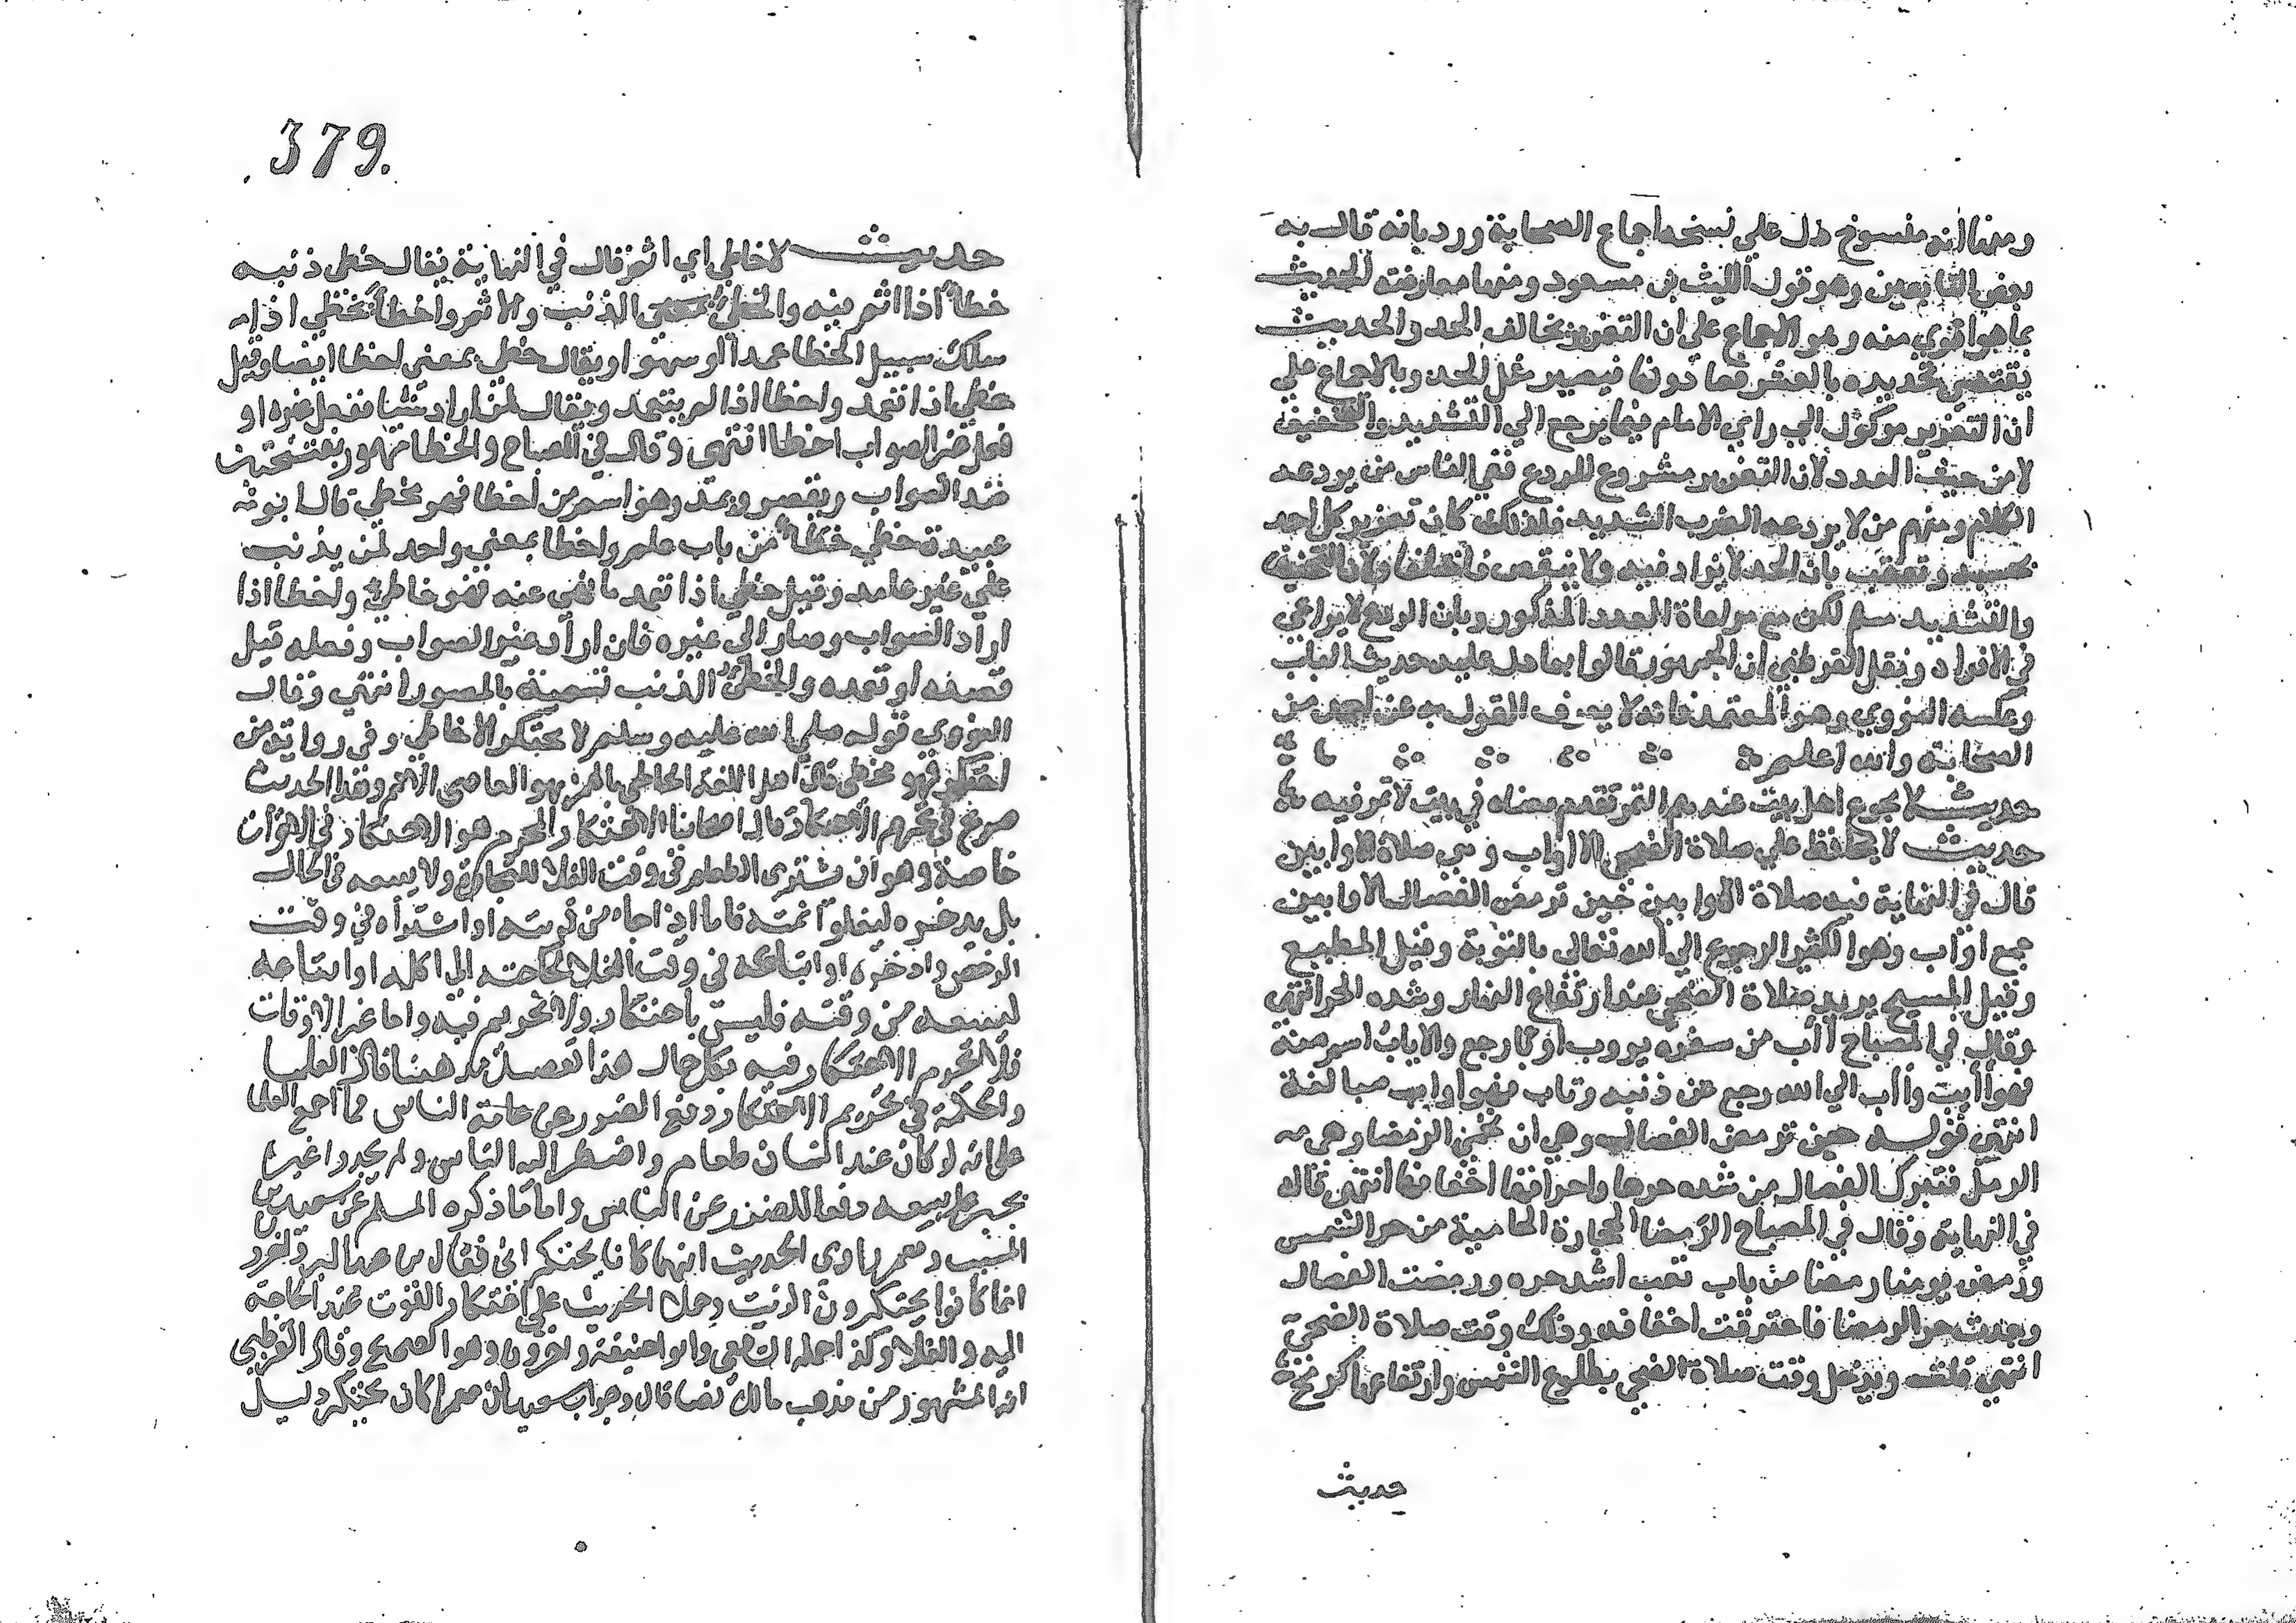 ومنها انه منسوخ دل علي نسخه اجماع الصحابة ورد بانه قال به
بعض التابعين وهو قول الليث بن مسعود ومنها معارضته للحديث
بما هو اقوي منه وهو الاجماع علي ان التعزير يخالف الحد والحديث
يقتضي تحديده بالعشر فما دونها فيصير مثل الحد وبالاجماع علي
ان التعزير موكول الي راي الامام فيما يرجع الي التشديد والتخفيف
لا من حيث العدد لان التعزير مشروع للردع ففي الناس من يردعه
الكلام ومنهم من لا يردعه الضرب الشديد فلذلك كان تعزير كل احد
بحسبه وتعقب بان الحد لا يزاد فيه ولا ينقص فاختلفا وبان التخفيف
والتشديد مسلم لكن مع مراعاة العدد المذكور وبان الردع لا يراعي
في الافراد ونقل القرطبي ان الجمهور قالوا بما دل عليه حديث الباب
وعكسه النووي وهو المعتمد فانه لا يعرف القول به عن احد من
الصحابة والله اعلم
حديث لا يجوع اهل بيت عندهم التمر تقدم معناه في بيت لا تمر فيه
حديث لا يحافظ علي صلاة الضحي الا اواب وهي صلاة الاوابين
قال في النهاية فيه صلاة الاوابين حين ترمض الفصال الاوابين
جمع اواب وهو الكثير الرجوع الي الله تعالى بالتوبة وقيل المطيع
وقيل المسبح يريد صلاة الضحي عند ارتفاع النهار وشده الحر انتهى
وقال في المصباح أاب من سفره يروب اوبا رجع والاياب اسم منه
فهو أايب وأاب الي الله رجع عن ذنبه وتاب فهو اواب مبالغة
انتهي قوله حين ترمض الفصال وهي ان تحمى الرمضا وهي
الرمل فتبرك الفصال من شده حرها واحراقها اخفافها انتهى قاله
في النهاية وقال في المصباح الرمضا الحجارة الحامية من حر الشمس
ورمض يومنا رمضا من باب تعب اشد حره ورمضت الفصال
وجدت حر الرمضا فاحترقت اخفافه وذلك وقت صلاة الضحي
انتهي قلت ويدخل وقت صلاة الضحي بطلوع الشمس وارتفاعها كرمح
حديث
379.
حديث لا خاطي اي اثم قال في النهاية يقال خطى ذنبه
خطأ اذا اثم فيه والخطئ الذنب والاثم واخطأ يخطي اذا
سلك سبيل الخطا عمدا او سهوا ويقال خطي بمعنى اخطا ايضا وقيل
خطي اذا تعمد واخطا اذا لم يتعمد ويقال لمن اراد شيا ففعل غيره او
فعل غير الصواب اخطا انتهى وقال في المصباح والخطا مهموز بفتحتين
ضد الصواب ويقصر ويمد وهو اسم من اخطا فهو مخطي قال ابو
عبيدة خطي خطأ من باب علم واخطا بمعني واحد لمن يذنب
علي غير عامد وقيل خطي اذا تعمد ما نهي عنه فهو خاطئ واخطا اذا
اراد الصواب وصار الي غيره فان اراد غير الصواب وفعله قيل
قصده او تعمده والخطئ الذنب تسمية بالمصدر انتهي وقال
النووي قوله صلي الله عليه وسلم لا يحتكر الا خاطي وفي رواية من
احتكر فهو مخطى قال اهل اللغة الخاطي بالهمز هو العاصي الاثم وهذا الحديث
صريح في تحريم الاحتكار قال اصحابنا الاحتكار المحرم هو الاحتكار في الاقوات
خاصة وهو ان يشترى الطعام في وقت الغلا للتجارة ولا يبيعه في الحال
بل يدخره ليغلو ثمنه فاما اذا جا من قريته او اشتراه في وقت
الرخص وادخره او ابتاعه في وقت الغلا لحاجته الى اكله او ابتاعه
ليبيعه من وقته فليس باحتكار ولا تحريم فيه واما غير الاقوات
فلا يحرم الاحتكار فيه بكل حال هذا تفصيل مذهبنا قال العلما
والحكمة في تحريم الاحتكار دفع الضرر عن عامة الناس كما اجمع العلما
على انه لو كان عند انسان طعام واضطر اليه الناس ولم يجدوا غيره
يجبر على بيعه دفعا للضرر عن الناس واما ما ذكره المسلم عن سعيد بن
المسيب ومعمر راوى الحديث انهما كانا يحتكران فقال ابن عبد البر
انما كانوا يحتكرون الزيت وحمل الحديث علي احتكار القوت عند الحاجة
اليه والغلا وكذا حمله الشافعي وابو حنيفة واخرون وهو الصحيح وقال القرطبي
انه المشهور من مذهب مالك قال وجواب سعيد بان معمرا كان يحتكر دليل